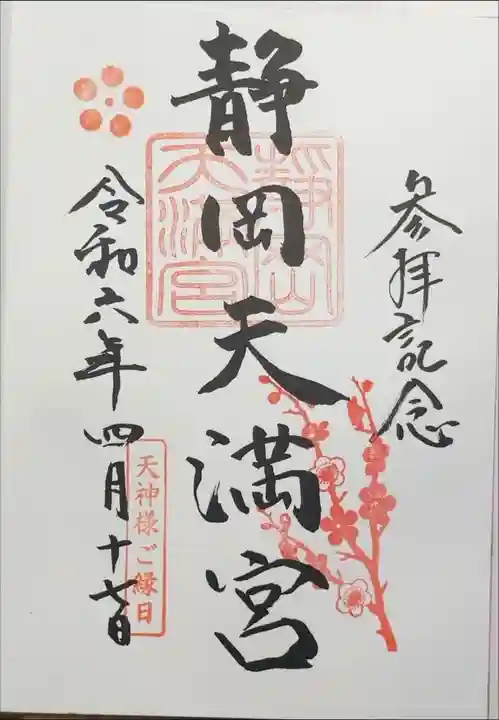 参拝記念
静岡天満宮
静岡天満宮
令和六年四月十七日
天神様ご縁日